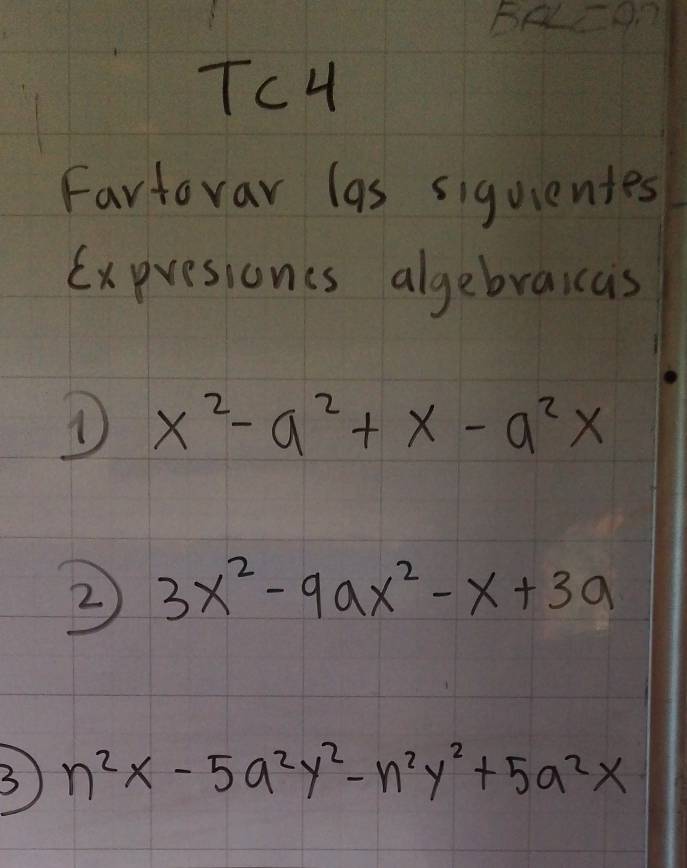 TC4
Fartorar las siguientes
Expresiones algebraicas
① x² - a² + x - a²x
② 3x² - 9ax² - x + 3a
③ n²x - 5a²y² - n²y² + 5a²x